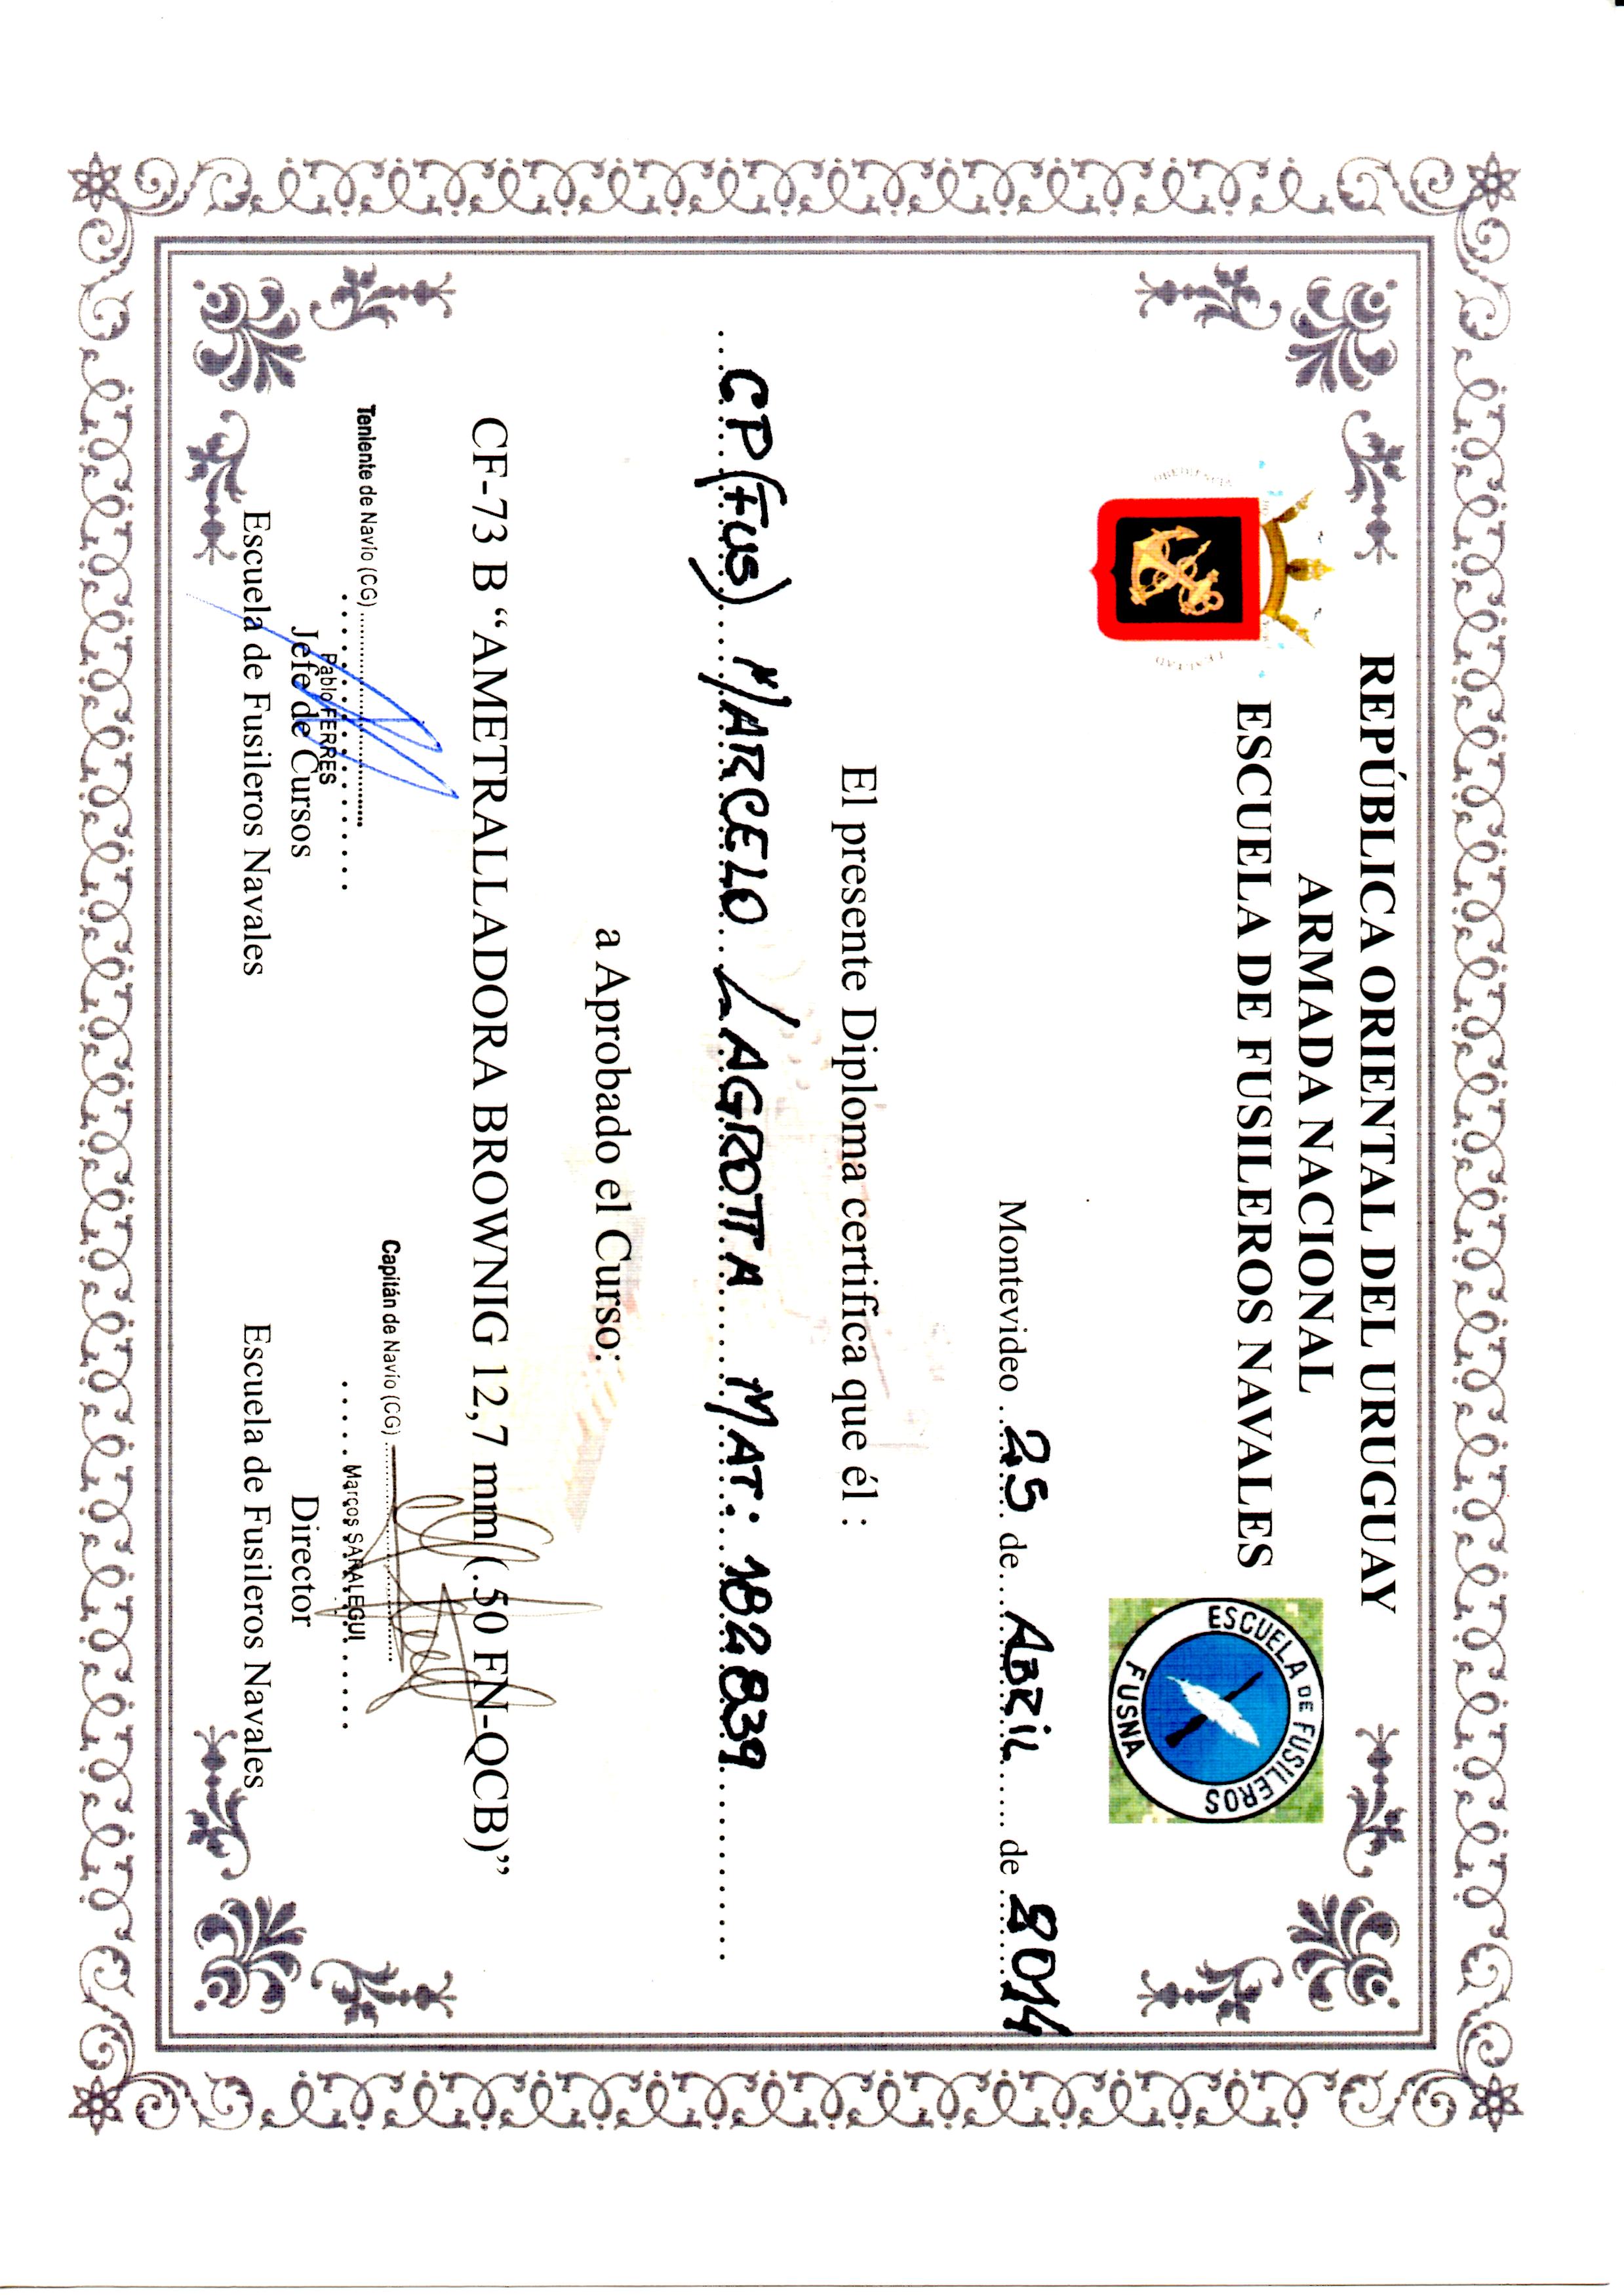 REPÚBLICA ORIENTAL DEL URUGUAY
ARMADA NACIONAL
ESCUELA DE FUSILEROS NAVALES
ESCUELA DE FUSILEROS
FUSNA
Montevideo 25 de Abril de 2014
El presente Diploma certifica que él :
CP (FUS) MARCELO LAGROTTA MAT: 182839
a Aprobado el Curso:
CF-73 B “AMETRALLADORA BROWNIG 12,7 mm (.50 FN-QCB)”
Teniente de Navío (CG)
Pablo FERRES
Jefe de Cursos
Escuela de Fusileros Navales
Capitán de Navío (CG)
Marcos SARALEGUI
Director
Escuela de Fusileros Navales